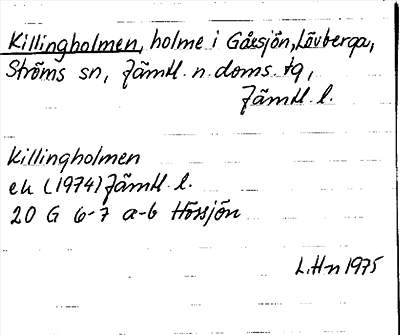 Killingholmen, holme i Gåxsjön, Lövberga,
Ströms sn, Jämtl. n. doms. tg,
Jämtl. l.
Killingholmen
ek (1974) Jämtl. l.
20 G 6-7 a-b Hossjön
L.H-n 1975